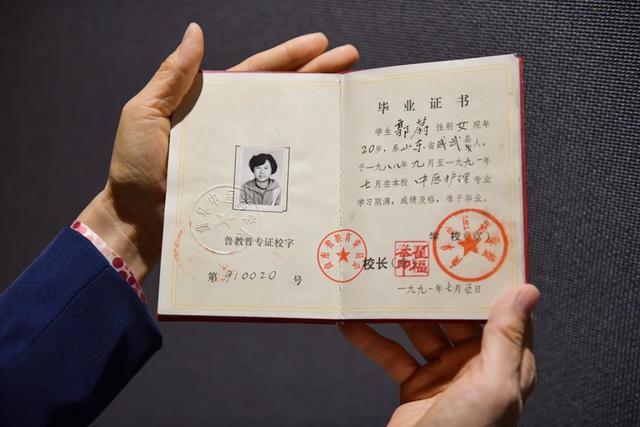 鲁教普专证校字
第 910020 号
山东省教育委员会
毕业证书
学生 郭蔚 性别 女 现年
20岁，系山东省成武县人。
于一九八八年九月至一九九一年
七月在本校 中医护理 专业
学习期满，成绩及格，准予毕业。
学校(章)
校长
一九九一年七月五日